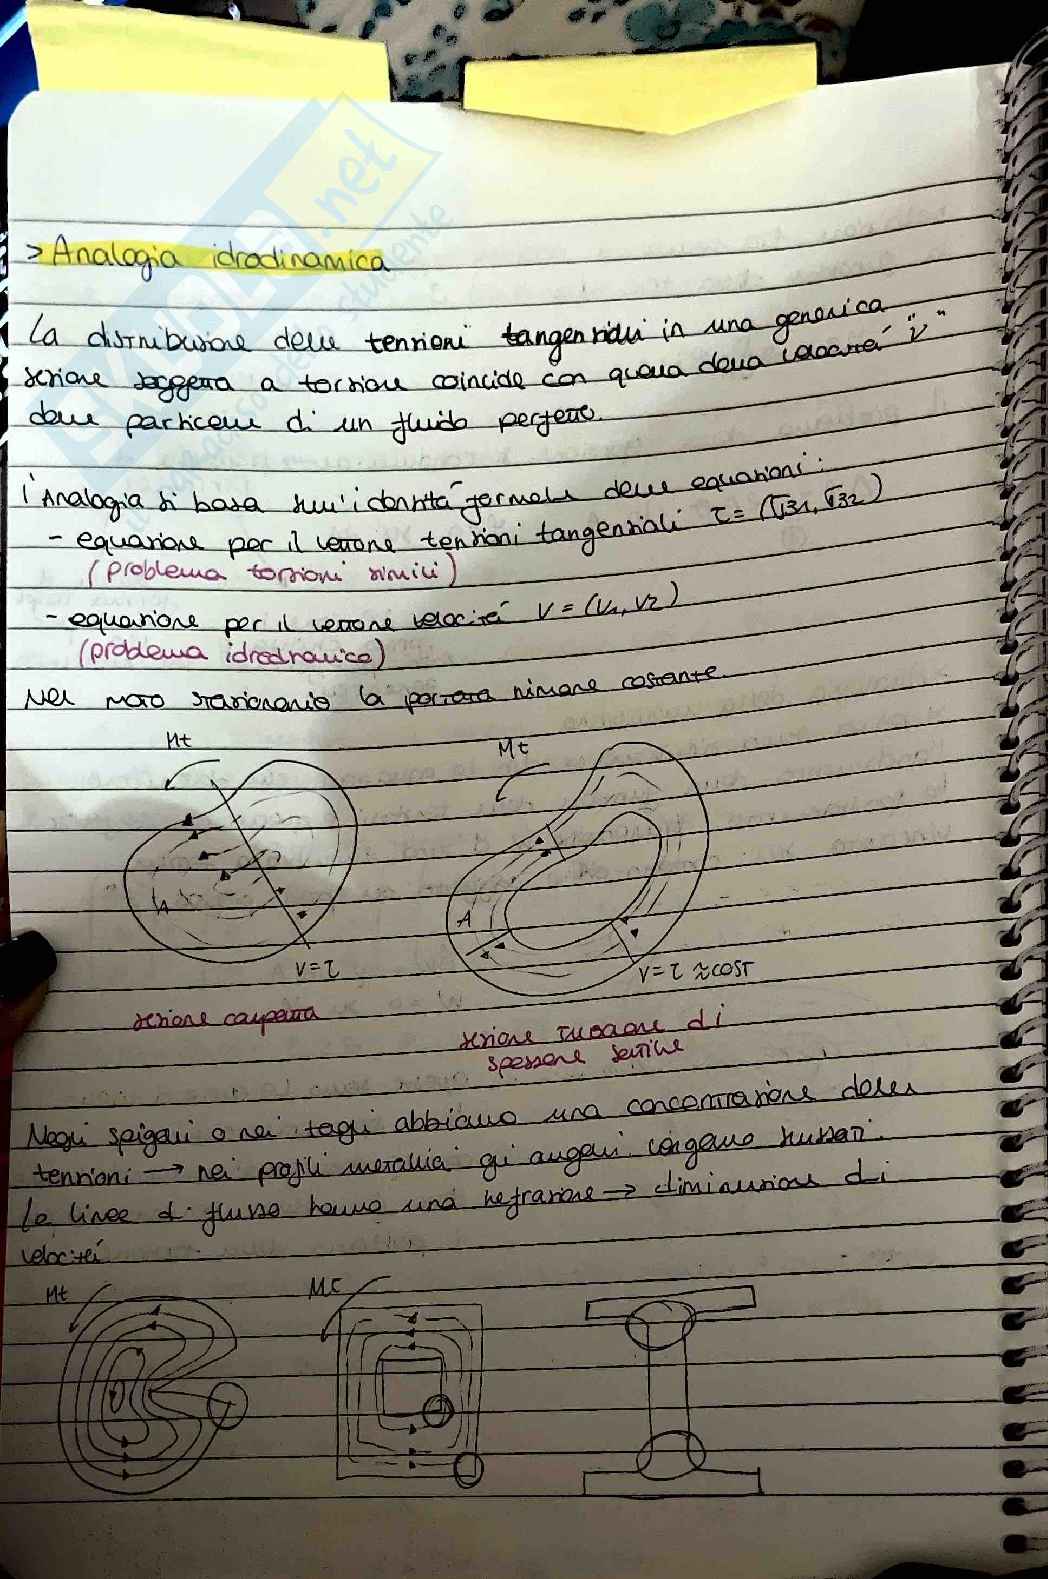 > Analogia idrodinamica
La distribuzione delle tensioni tangenziali in una generica
sezione soggetta a torsione coincide con quella della velocità "v"
delle particelle di un fluido perfetto.
l'Analogia si basa sull'identità formale delle equazioni:
- equazione per il vettore tensioni tangenziali τ = (σ31, σ32)
(problema torsioni simili)
- equazione per il vettore velocità v = (v1, v2)
(problema idrodinamico)
Nel moto stazionario la portata rimane costante.
Mt
Mt
A
A
v = τ
v = τ ≈ cost
sezione compatta
sezione tubolare di
spessore sottile
Negli spigoli o nei tagli abbiamo una concentrazione delle
tensioni → nei profili metallici gli angoli vengono smussati.
Le linee di flusso hanno una rifrazione → diminuzione di
velocità
Mt
Mt